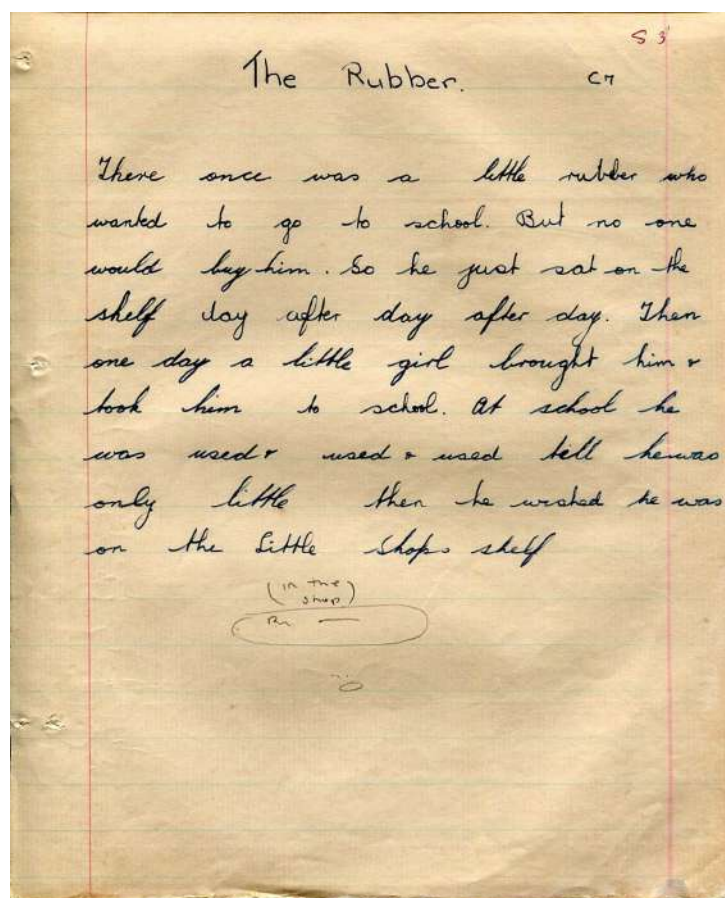 S 3
The Rubber. C7
There once was a little rubber who
wanted to go to school. But no one
would buy him. So he just sat on the
shelf day after day after day. Then
one day a little girl brought him &
took him to school. At school he
was used & used & used till he was
only little then he wished he was
on the Little Shops shelf
(in the
shop)